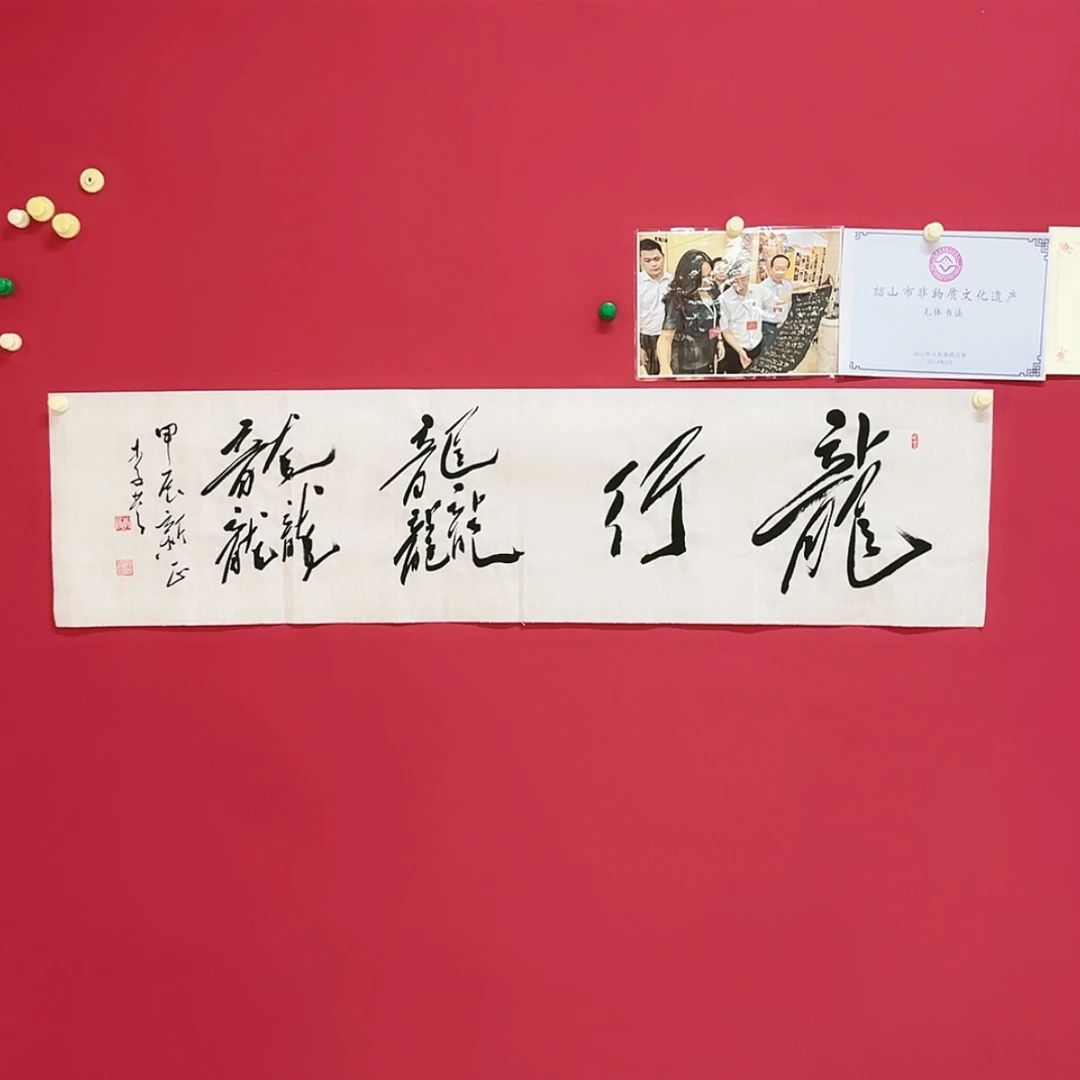 龍行龘龘
甲辰新正
韶山市非物质文化遗产
毛体书法